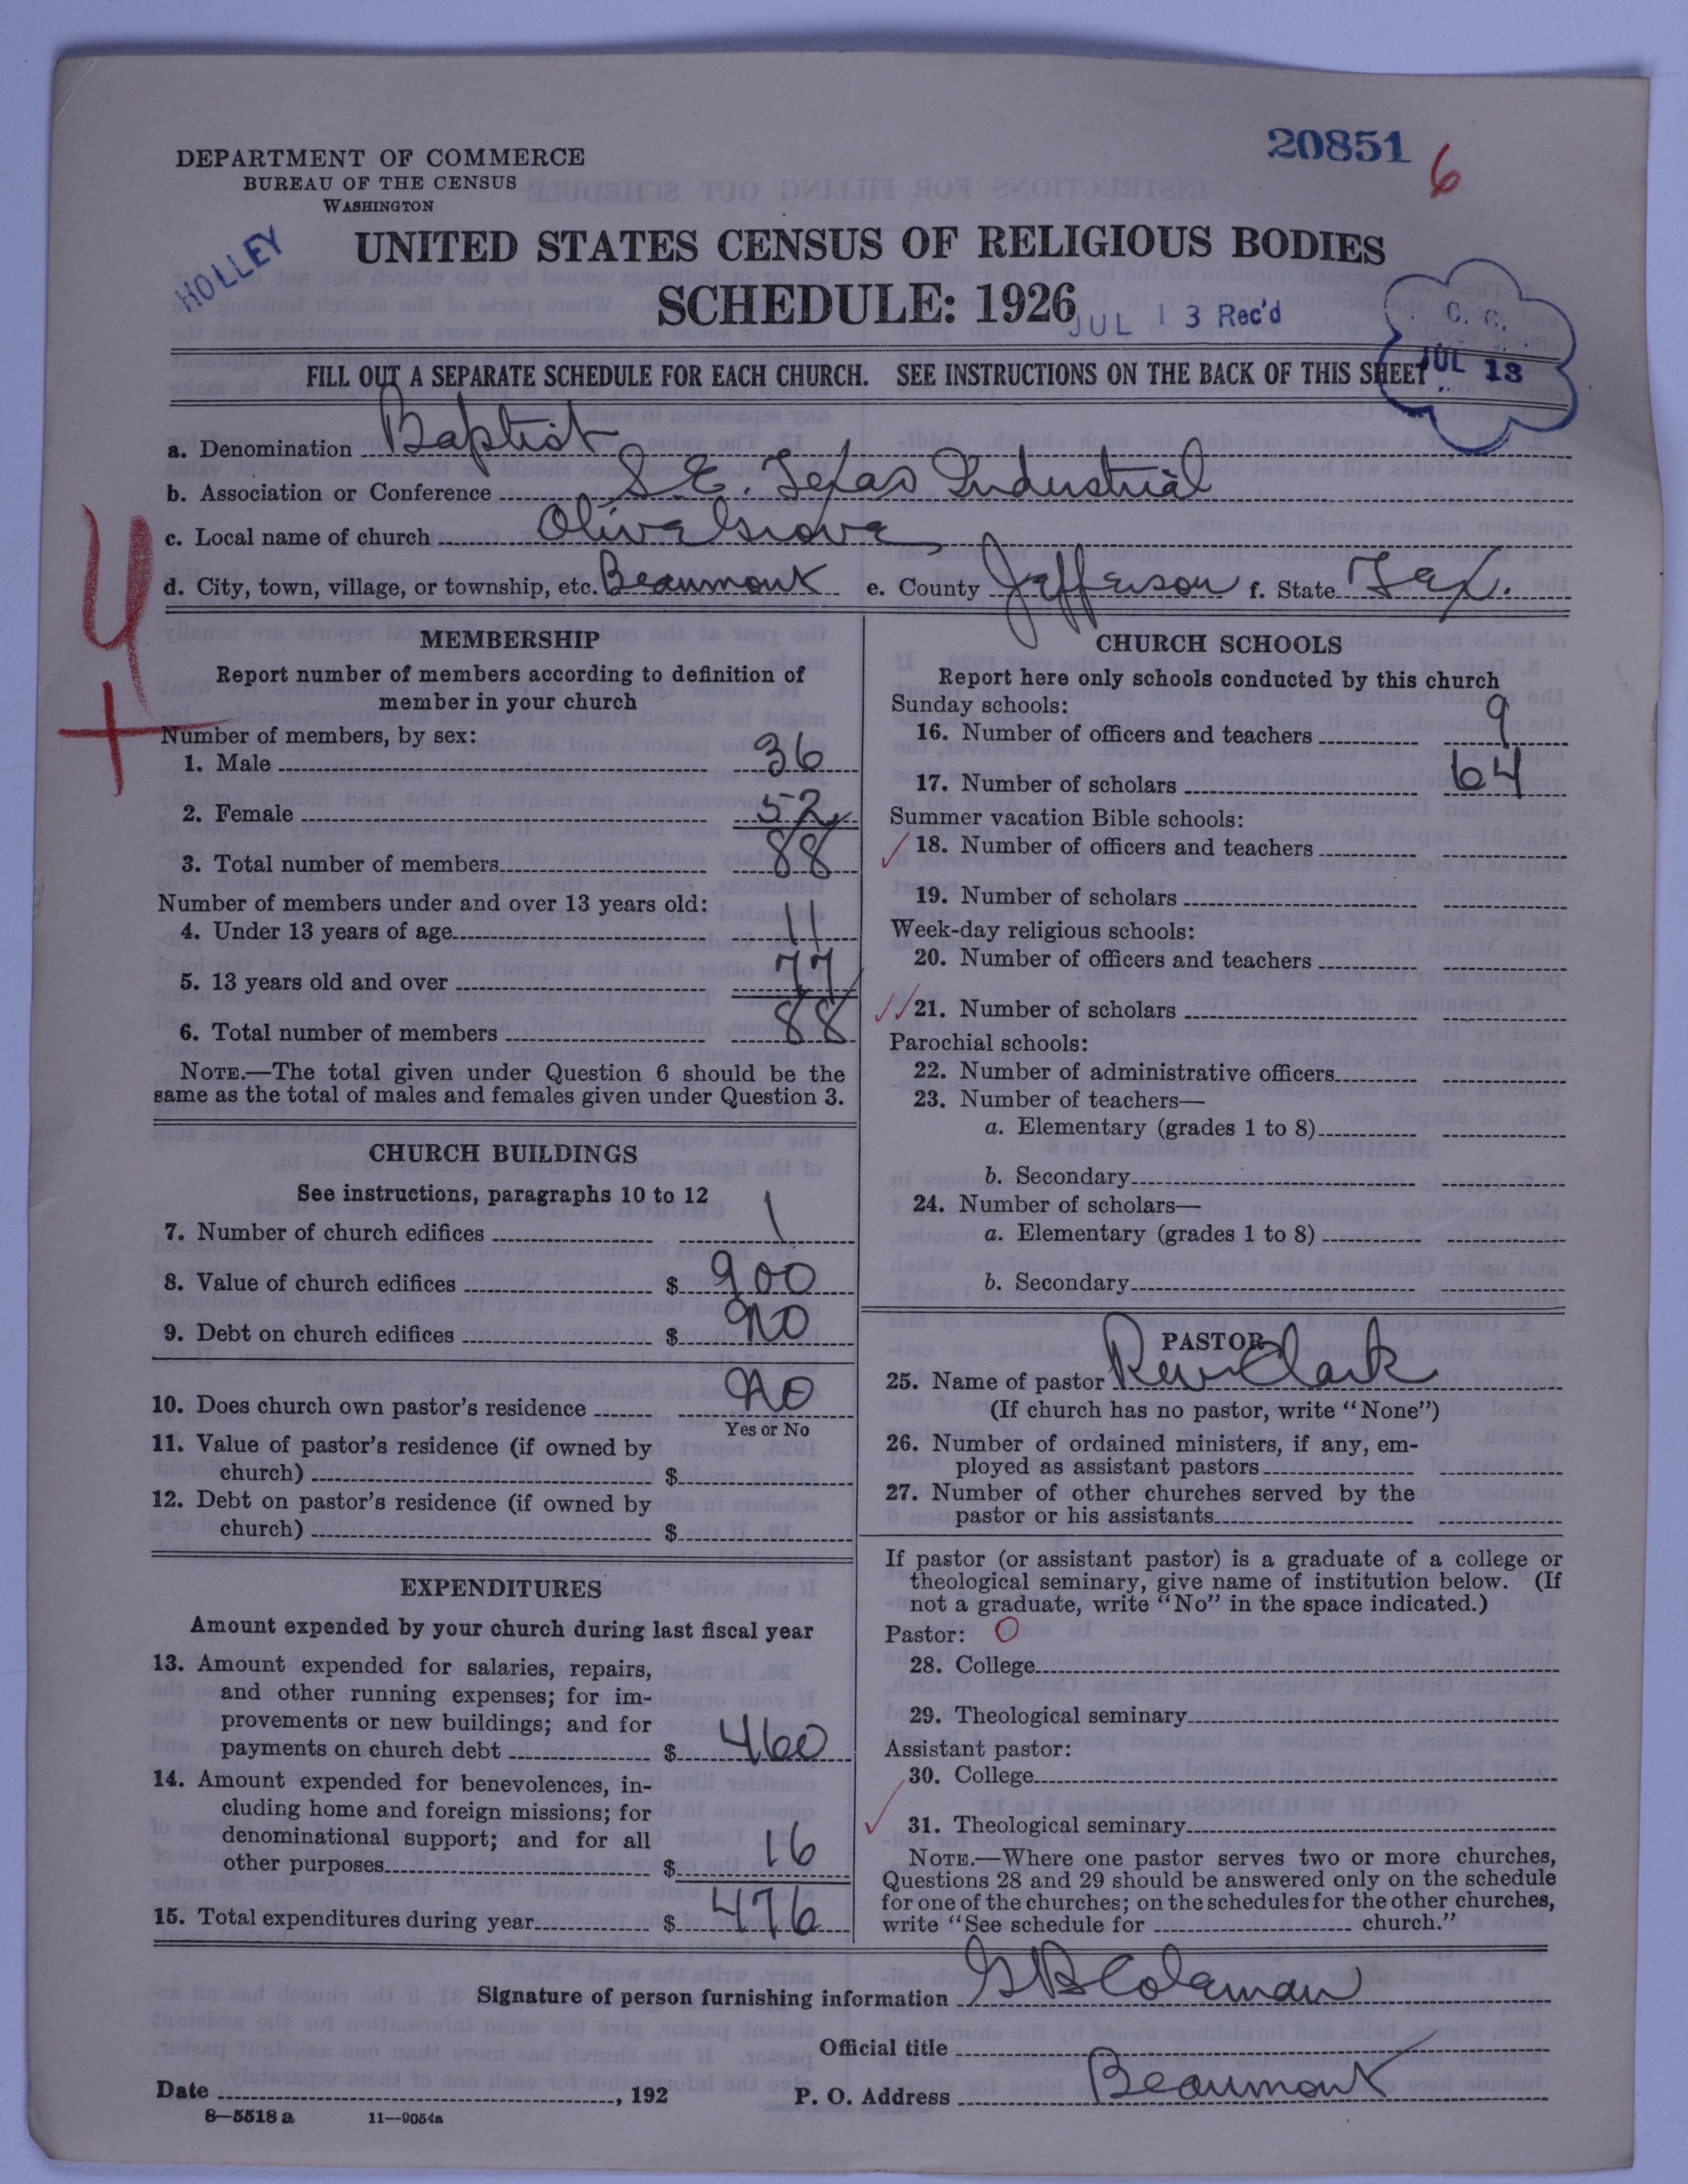 20851 6
DEPARTMENT OF COMMERCE
BUREAU OF THE CENSUS
WASHINGTON
HOLLEY
UNITED STATES CENSUS OF RELIGIOUS BODIES
SCHEDULE: 1926
JUL 13 Rec'd
C. C.
JUL 13
FILL OUT A SEPARATE SCHEDULE FOR EACH CHURCH. SEE INSTRUCTIONS ON THE BACK OF THIS SHEET
a. Denomination Baptist
b. Association or Conference S. E. Texas Industrial
c. Local name of church Olive Grove
d. City, town, village, or township, etc. Beaumont e. County Jefferson f. State Tex.
4
+
MEMBERSHIP
Report number of members according to definition of
member in your church
Number of members, by sex:
1. Male 36
2. Female 52
3. Total number of members 88
Number of members under and over 13 years old:
4. Under 13 years of age 11
5. 13 years old and over 77
6. Total number of members 88
NOTE.—The total given under Question 6 should be the
same as the total of males and females given under Question 3.
CHURCH BUILDINGS
See instructions, paragraphs 10 to 12
7. Number of church edifices 1
8. Value of church edifices $ 900
9. Debt on church edifices $ no
10. Does church own pastor's residence no
Yes or No
11. Value of pastor's residence (if owned by
church) $
12. Debt on pastor's residence (if owned by
church) $
EXPENDITURES
Amount expended by your church during last fiscal year
13. Amount expended for salaries, repairs,
and other running expenses; for im-
provements or new buildings; and for
payments on church debt $ 460
14. Amount expended for benevolences, in-
cluding home and foreign missions; for
denominational support; and for all
other purposes $ 16
15. Total expenditures during year $ 476
CHURCH SCHOOLS
Report here only schools conducted by this church
Sunday schools:
16. Number of officers and teachers 9
17. Number of scholars 64
Summer vacation Bible schools:
18. Number of officers and teachers
19. Number of scholars
Week-day religious schools:
20. Number of officers and teachers
21. Number of scholars
Parochial schools:
22. Number of administrative officers
23. Number of teachers—
a. Elementary (grades 1 to 8)
b. Secondary
24. Number of scholars—
a. Elementary (grades 1 to 8)
b. Secondary
PASTOR
25. Name of pastor Rev Clark
(If church has no pastor, write "None")
26. Number of ordained ministers, if any, em-
ployed as assistant pastors
27. Number of other churches served by the
pastor or his assistants
If pastor (or assistant pastor) is a graduate of a college or
theological seminary, give name of institution below. (If
not a graduate, write "No" in the space indicated.)
Pastor: O
28. College
29. Theological seminary
Assistant pastor:
30. College
31. Theological seminary
NOTE.—Where one pastor serves two or more churches,
Questions 28 and 29 should be answered only on the schedule
for one of the churches; on the schedules for the other churches,
write "See schedule for church."
Signature of person furnishing information G B Coleman
Official title
Date , 192 P. O. Address Beaumont
8—5518 a 11—9054a